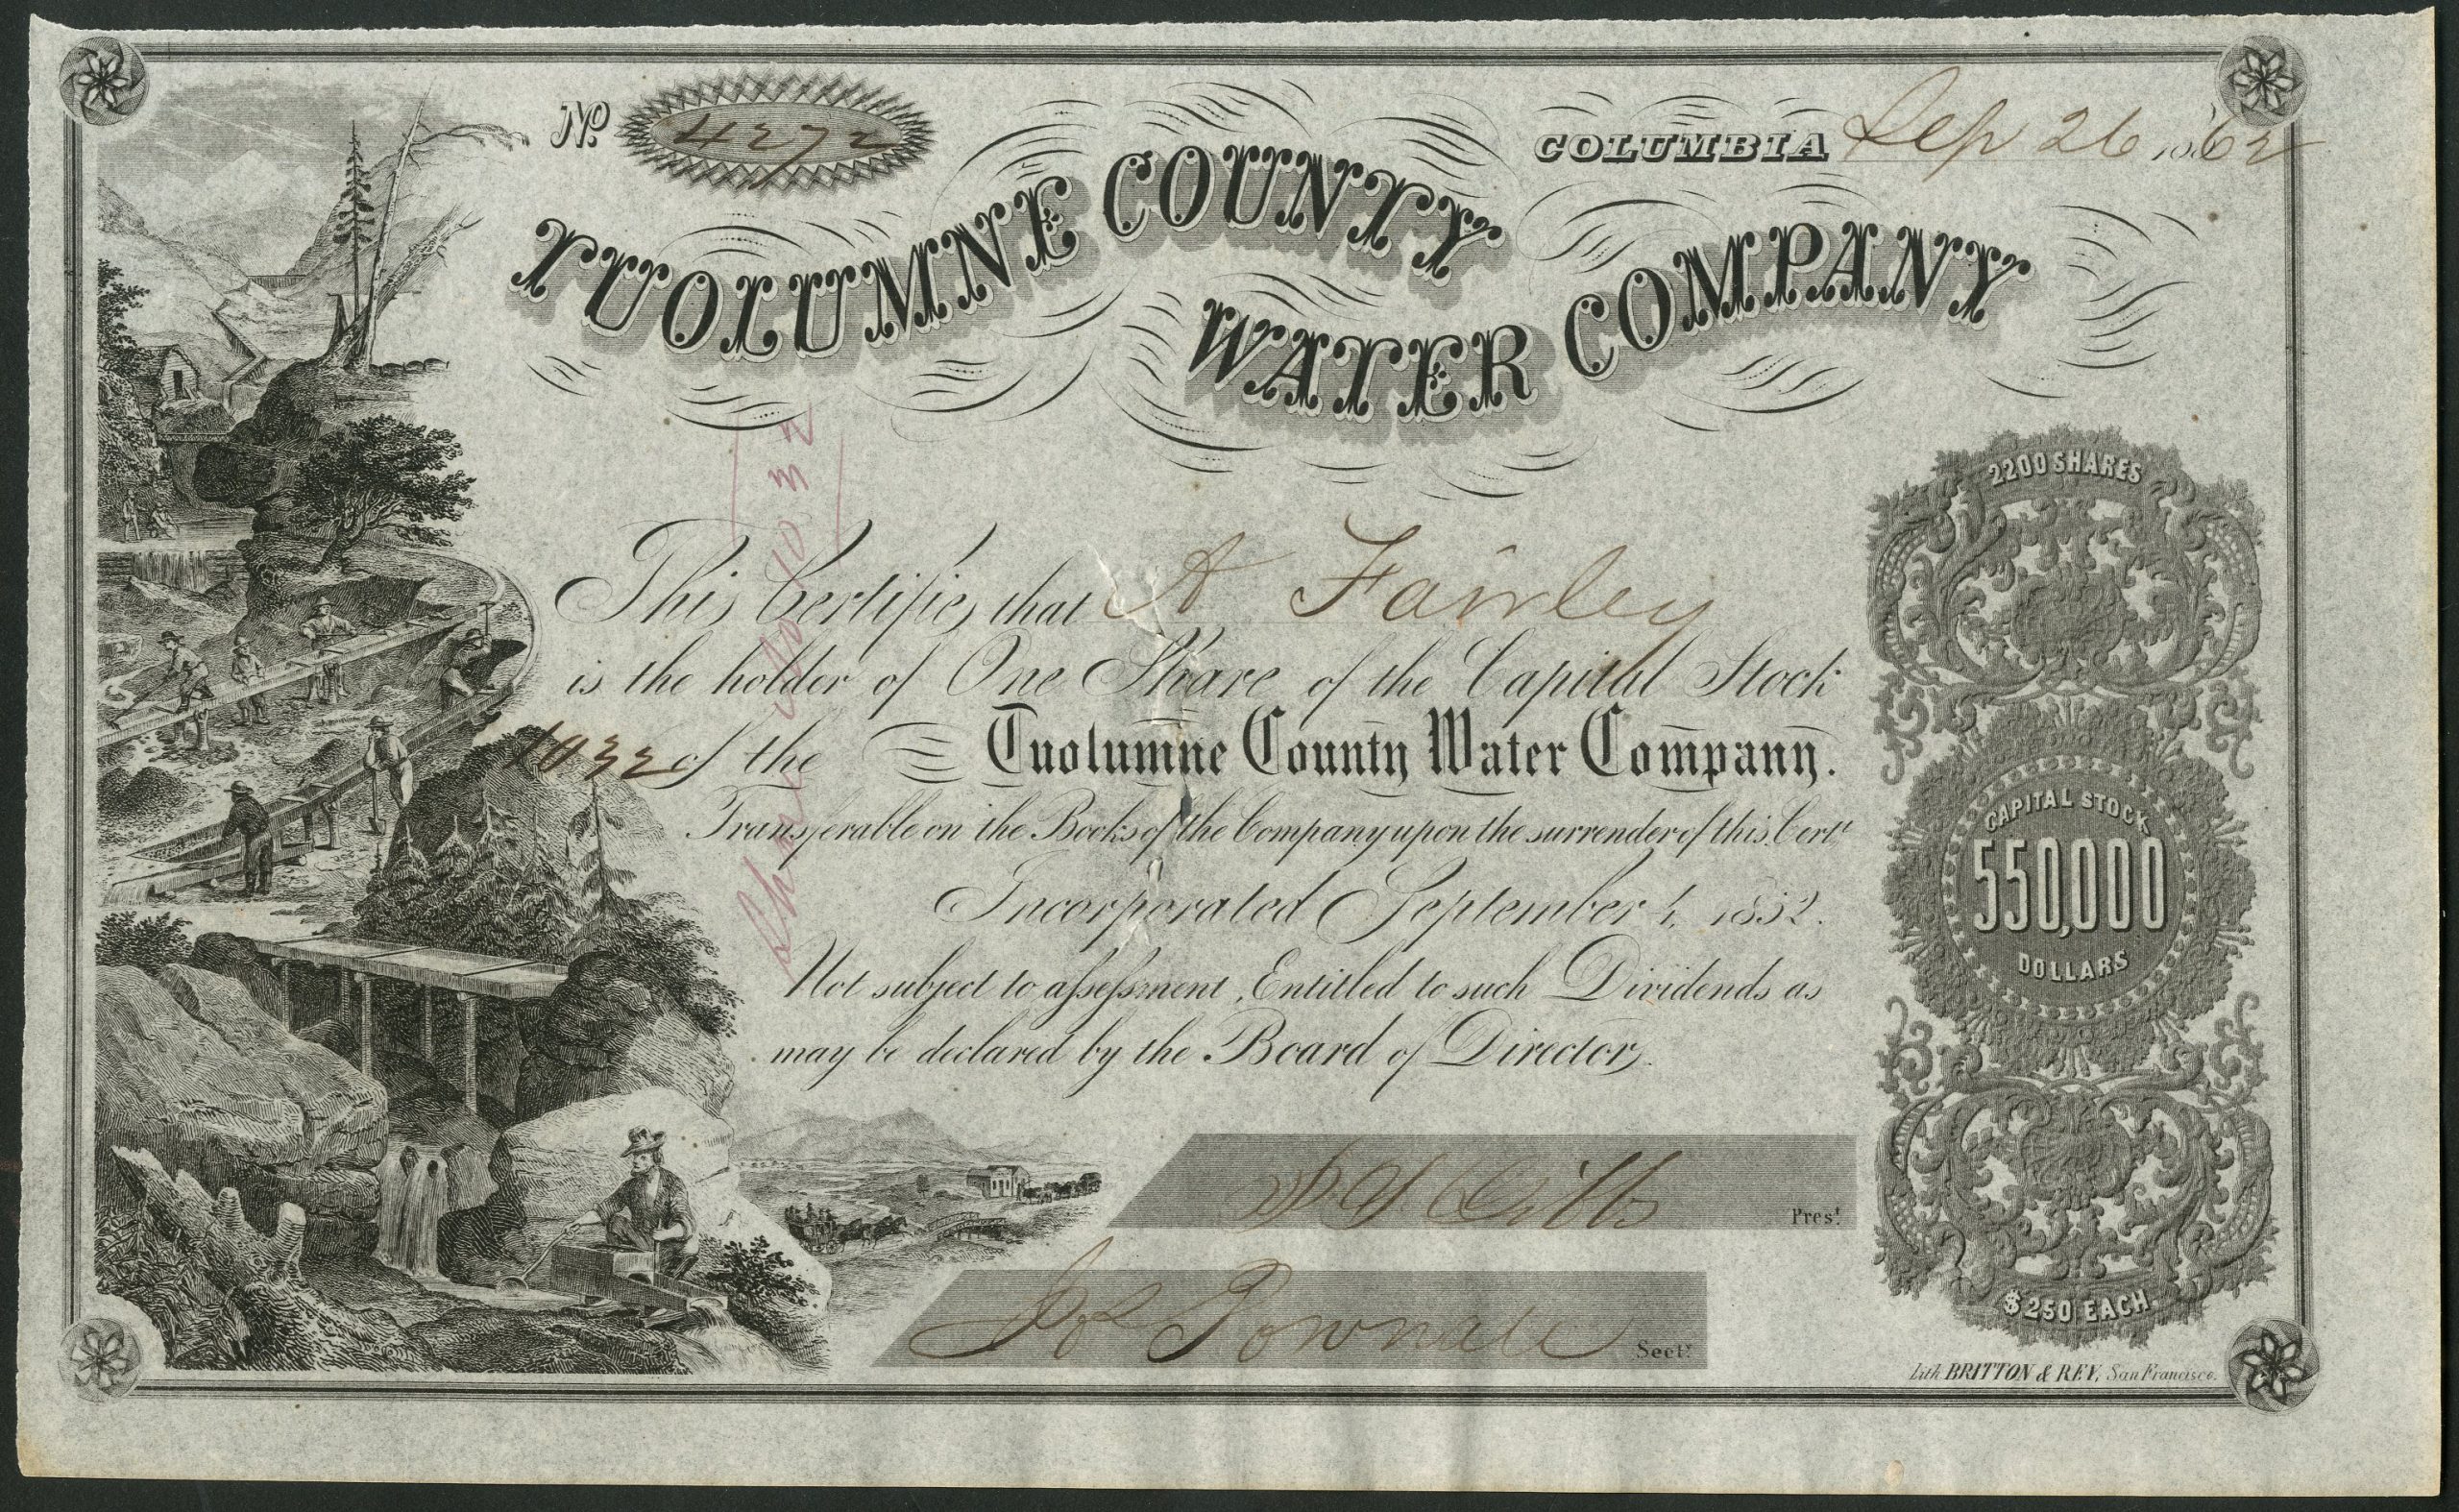 No. 4272
COLUMBIA Sep 26 1862
TUOLUMNE COUNTY
WATER COMPANY
2200 SHARES
This Certifies that A Fairley
is the holder of One Share of the Capital Stock
1032 of the Tuolumne County Water Company.
Transferable on the Books of the Company upon the surrender of this Cert.
Incorporated September 4, 1852.
Not subject to assessment, Entitled to such Dividends as
may be declared by the Board of Directors.
CAPITAL STOCK
550,000
DOLLARS
Gibbs Prest.
Jos Pownall Secty.
$250 EACH.
Lith. BRITTON & REY, San Francisco.
Share No 1032